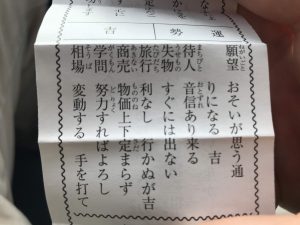 運勢
吉
願望 おそいが思う通
りになる 吉
待人 音信あり来る
失物 すぐには出ない
旅行 利なし 行かぬが吉
商売 物価上下定まらず
学問 努力すればよろし
相場 変動する 手を打て